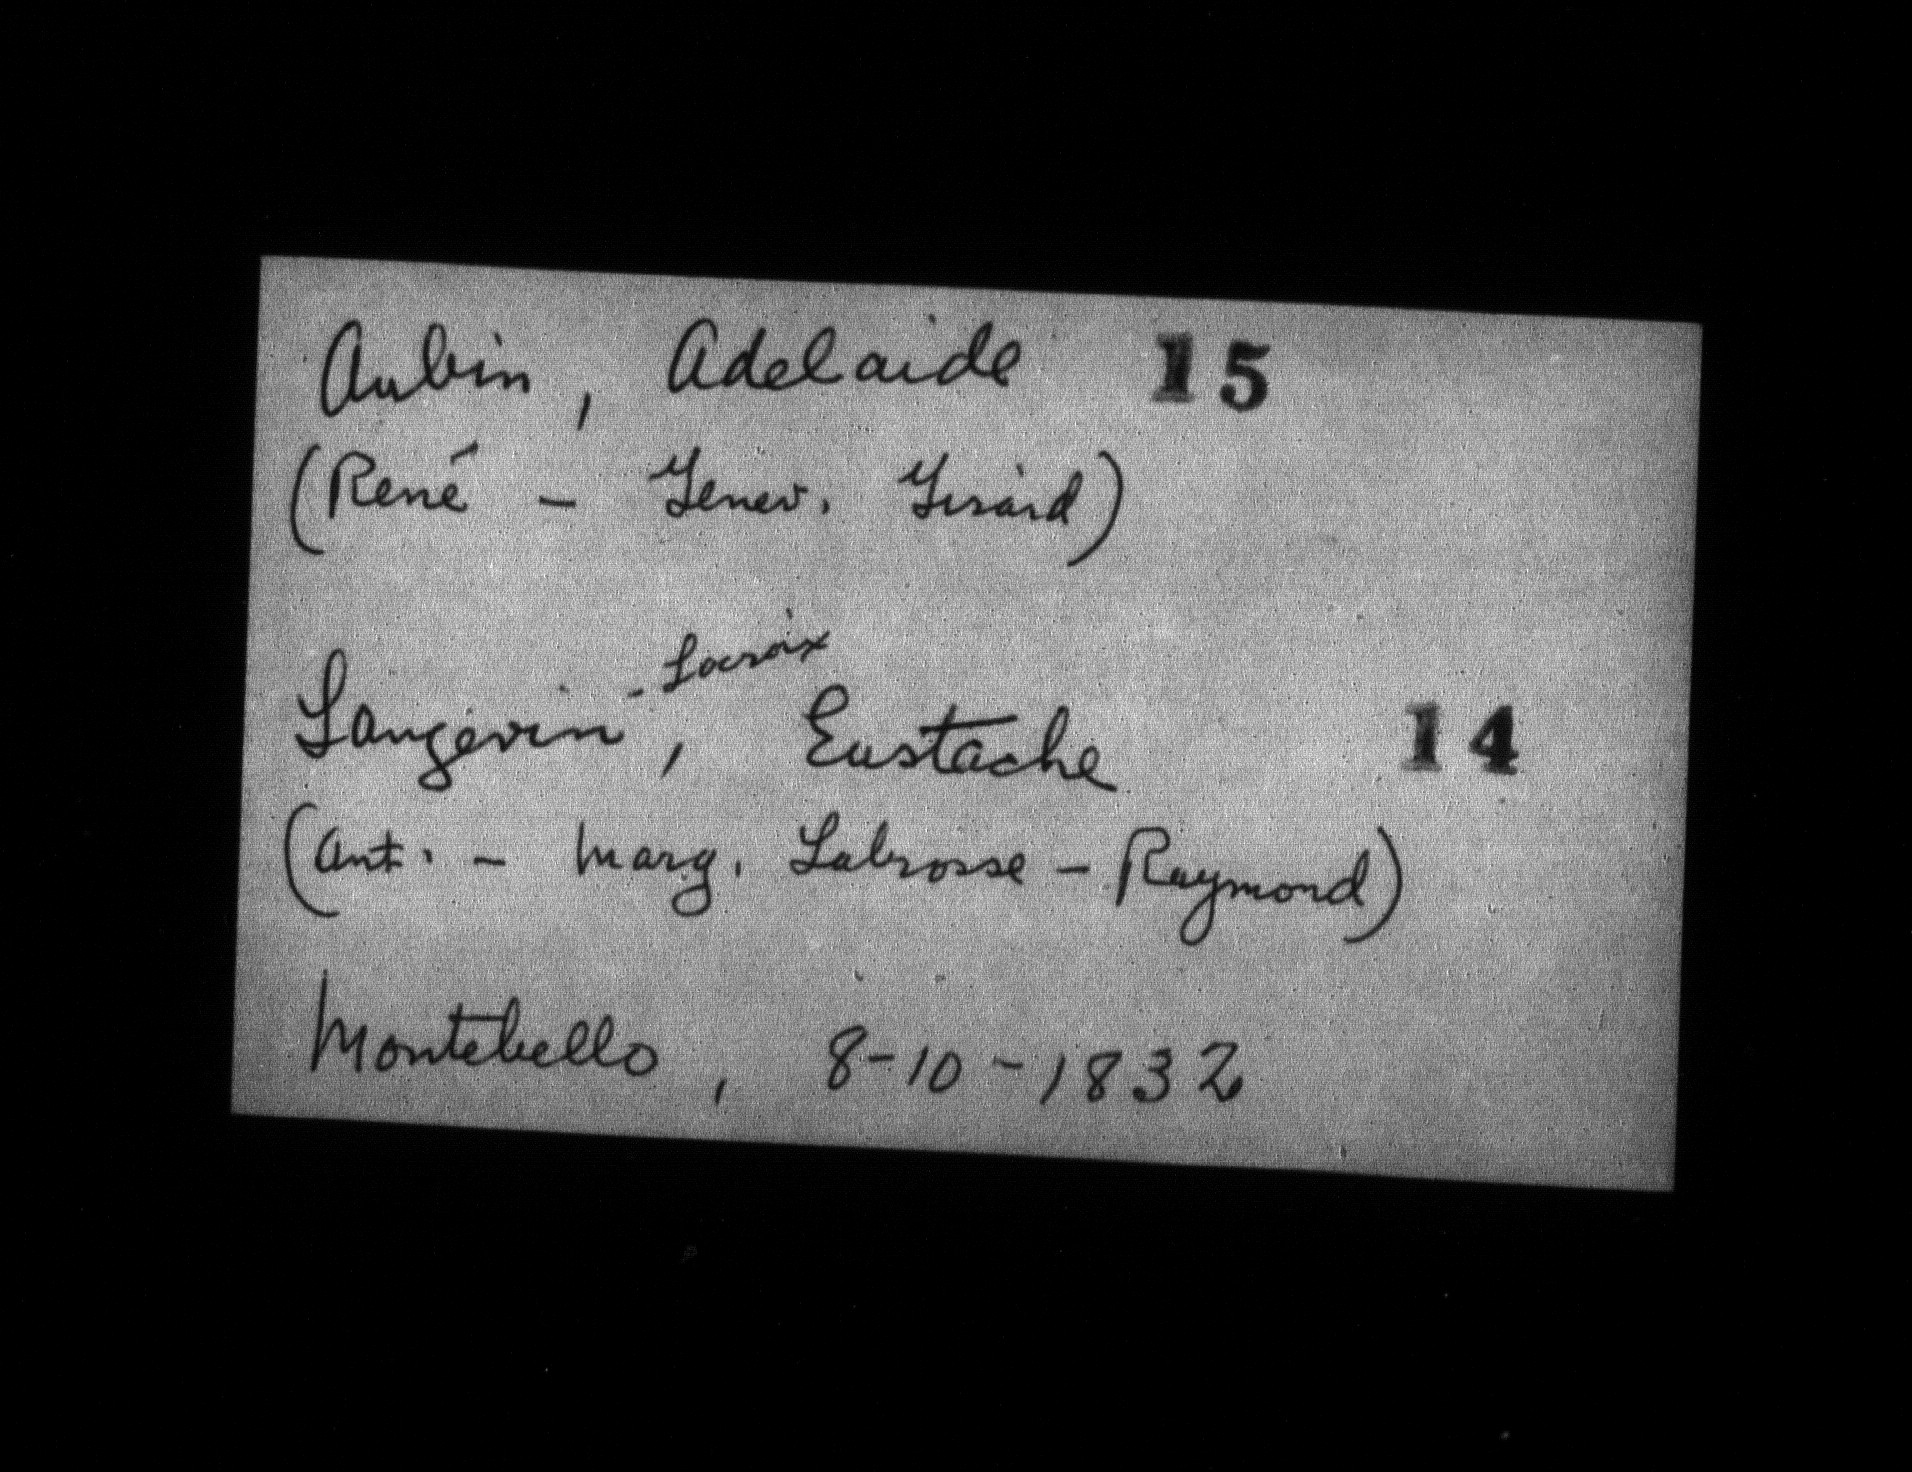 Aubin, Adelaide 15
(René - Genev. Girard)
Langevin - Lacroix, Eustache 14
(Ant. - Marg. Labrosse - Raymond)
Montebello, 8-10-1832